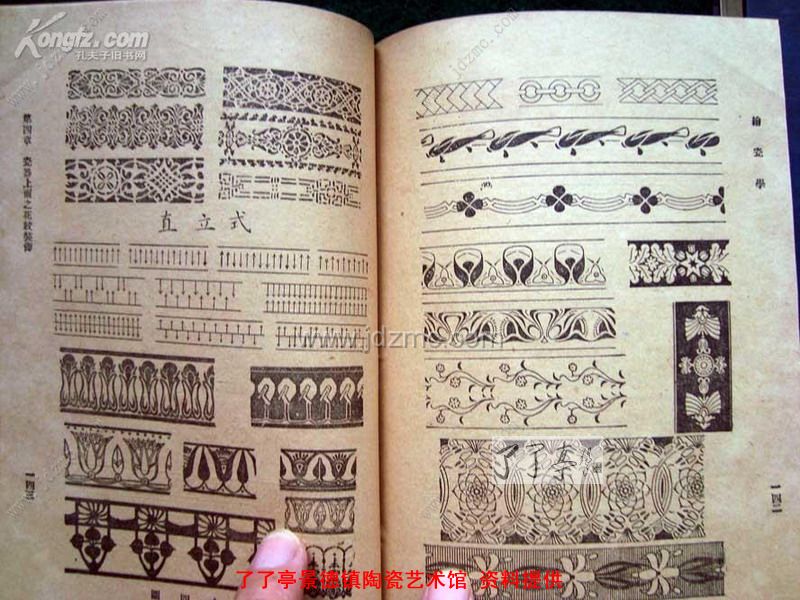 Kongfz.com
孔夫子旧书网
繪瓷學
一四二
第四章 瓷器上面之花紋裝飾
直立式
一四三
www.jdzmc.com
了了亭
了了亭景德镇陶瓷艺术馆 资料提供